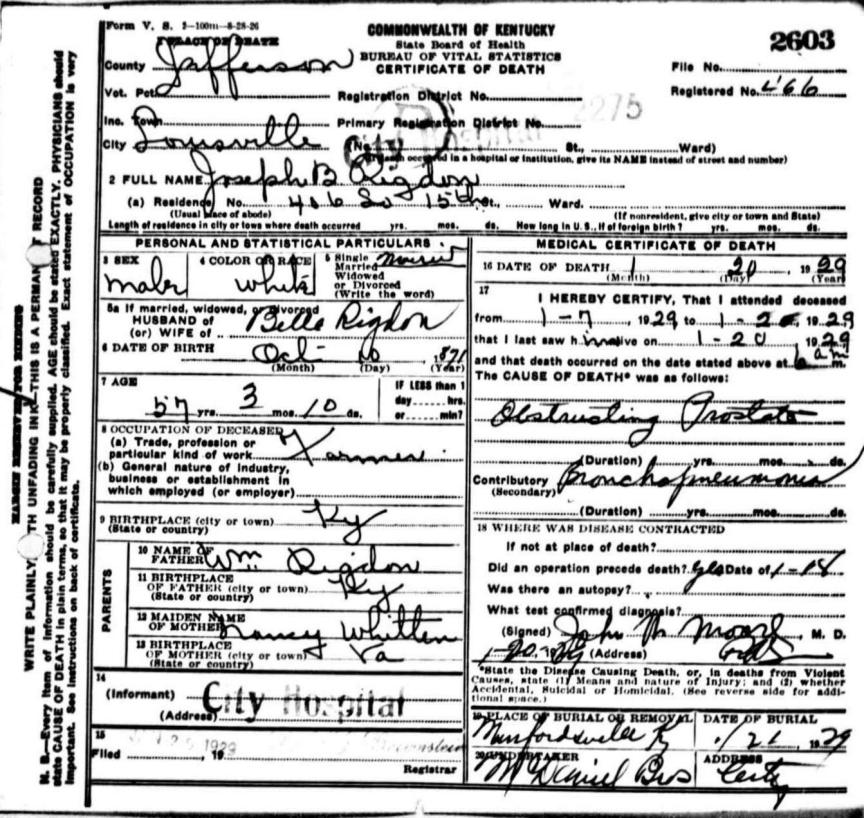 Form V. S. 1-100m-8-28-26
1 PLACE OF DEATH
COMMONWEALTH OF KENTUCKY
State Board of Health
BUREAU OF VITAL STATISTICS
CERTIFICATE OF DEATH
2603
County Jefferson
File No.
Vot. Pct.
Registration District No.
Registered No. 466
2275
Inc. Town
Primary Registration District No.
City Louisville
(No. City Hospital St., Ward)
(If death occurred in a hospital or institution, give its NAME instead of street and number)
2 FULL NAME Joseph B Rigdon
(a) Residence No. 406 So 15th St., Ward.
(Usual place of abode) (If nonresident, give city or town and State)
Length of residence in city or town where death occurred yrs. mos. ds. How long in U. S., if of foreign birth? yrs. mos. ds.
PERSONAL AND STATISTICAL PARTICULARS
3 SEX
male
4 COLOR OR RACE
white
5 Single
Married
Widowed
or Divorced
(Write the word)
5a If married, widowed, or divorced
HUSBAND of
(or) WIFE of Belle Rigdon
6 DATE OF BIRTH Oct 10 1871
(Month) (Day) (Year)
7 AGE
57 yrs. 3 mos. 10 ds.
IF LESS than 1
day hrs.
or min?
8 OCCUPATION OF DECEASED
(a) Trade, profession or
particular kind of work Farmer
(b) General nature of industry,
business or establishment in
which employed (or employer)
9 BIRTHPLACE (city or town) Ky
(State or country)
PARENTS
10 NAME OF
FATHER Wm Rigdon
11 BIRTHPLACE
OF FATHER (city or town) Ky
(State or country)
12 MAIDEN NAME
OF MOTHER Nancy Whitten
13 BIRTHPLACE
OF MOTHER (city or town) Va
(State or country)
14
(Informant) City Hospital
(Address)
15
Filed 1929, 19
Registrar
MEDICAL CERTIFICATE OF DEATH
16 DATE OF DEATH 1 20 1929
(Month) (Day) (Year)
17
I HEREBY CERTIFY, That I attended deceased
from 1-7 1929 to 1-20, 1929
that I last saw him alive on 1-20 1929
and that death occurred on the date stated above at am m.
The CAUSE OF DEATH* was as follows:
Obstructing Prostate
(Duration) yrs. mos. ds.
Contributory Bronchopneumonia
(Secondary)
(Duration) yrs. mos. ds.
18 WHERE WAS DISEASE CONTRACTED
If not at place of death?
Did an operation precede death? yes Date of 1-18
Was there an autopsy?
What test confirmed diagnosis?
(Signed) John M. Moore, M. D.
1-20, 1929 (Address)
*State the Disease Causing Death, or, in deaths from Violent
Causes, state (1) Means and nature of Injury; and (2) whether
Accidental, Suicidal or Homicidal. (See reverse side for addi-
tional space.)
19 PLACE OF BURIAL OR REMOVAL
Munfordsville Ky
DATE OF BURIAL
1/21, 1929
20 UNDERTAKER
McDaniel Bros
ADDRESS
City
MARGIN RESERVED FOR BINDING
WRITE PLAINLY, WITH UNFADING INK—THIS IS A PERMANENT RECORD
N. B.—Every item of information should be carefully supplied. AGE should be stated EXACTLY. PHYSICIANS should
state CAUSE OF DEATH in plain terms, so that it may be properly classified. Exact statement of OCCUPATION is very
important. See instructions on back of certificate.